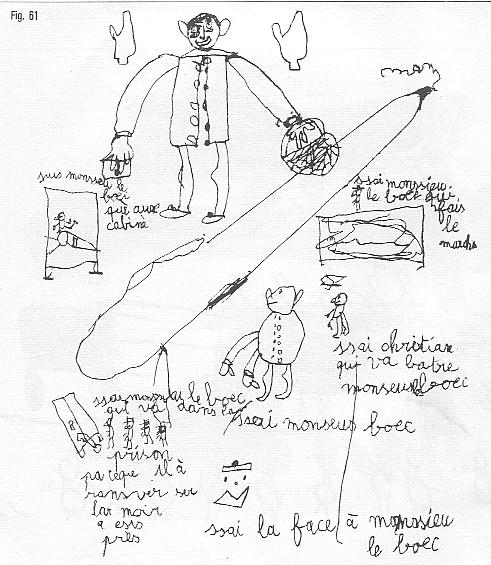 Fig. 61
mam
sus monsseu le
boec
qui aux
cabine
ssai monssieu
le boec qui
fais
le
marchs
ssai christian
qui va batre
monseur boec
ssai monsseu le boec
qui va dans la
prison
parceque il à
ranverser ser
la moir
a ess
près
ssai monseus boec
ssai la face à monssieu
le boec